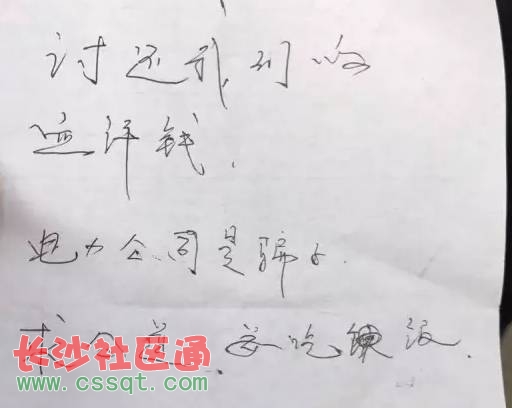 讨还我们的
血汗钱.
电力公司是骗子.
求公道.
长沙社区通
www.cssqt.com